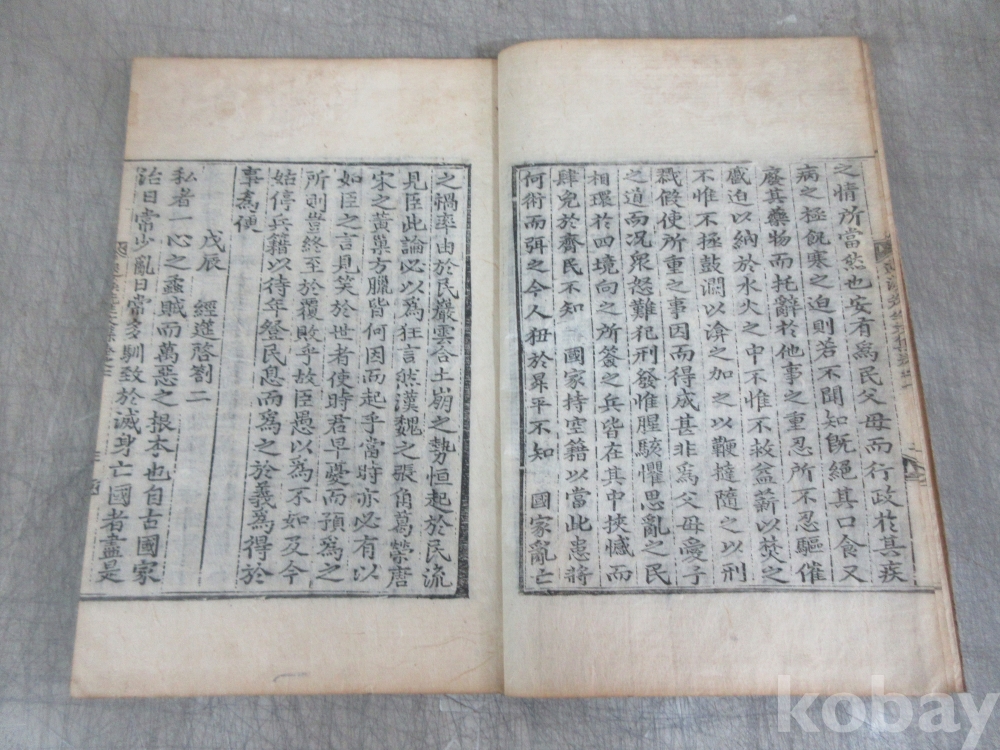 之情所當然也安有爲民父母而行政於其疾
病之極飢寒之迫則若不聞知旣絕其口食又
廢其藥物而托辭於他事之重忍所不忍驅催
威迫以納於水火之中不惟不救益薪以焚之
不惟不拯鼓瀾以渰之加之以鞭撻隨之以刑
戮假使所重之事因而得成甚非爲父母愛子
之道而况衆怒難犯刑發惟腥駭懼思亂之民
相環於四境向之所簽之兵皆在其中挾憾而
肆免於齊民不知 國家持空籍以當此患將
何術而弭之今人狃於昇平不知 國家亂亡
之禍率由於民巖雲合土崩之勢恒起於民流
見臣此論必以爲狂言然漢魏之張角葛榮唐
宋之黃巢方臘皆何因而起乎當時亦必有以
如臣之言見笑於世者使時君早憂而預爲之
所則豈終至於覆敗乎故臣愚以爲不如及今
姑停兵籍以待年登民息而爲之於義爲得於
事爲便
戊辰 經筵啓劄二
私者一心之蟊賊而萬惡之根本也自古國家
治日常少亂日常多馴致於滅身亡國者盡是
kobay